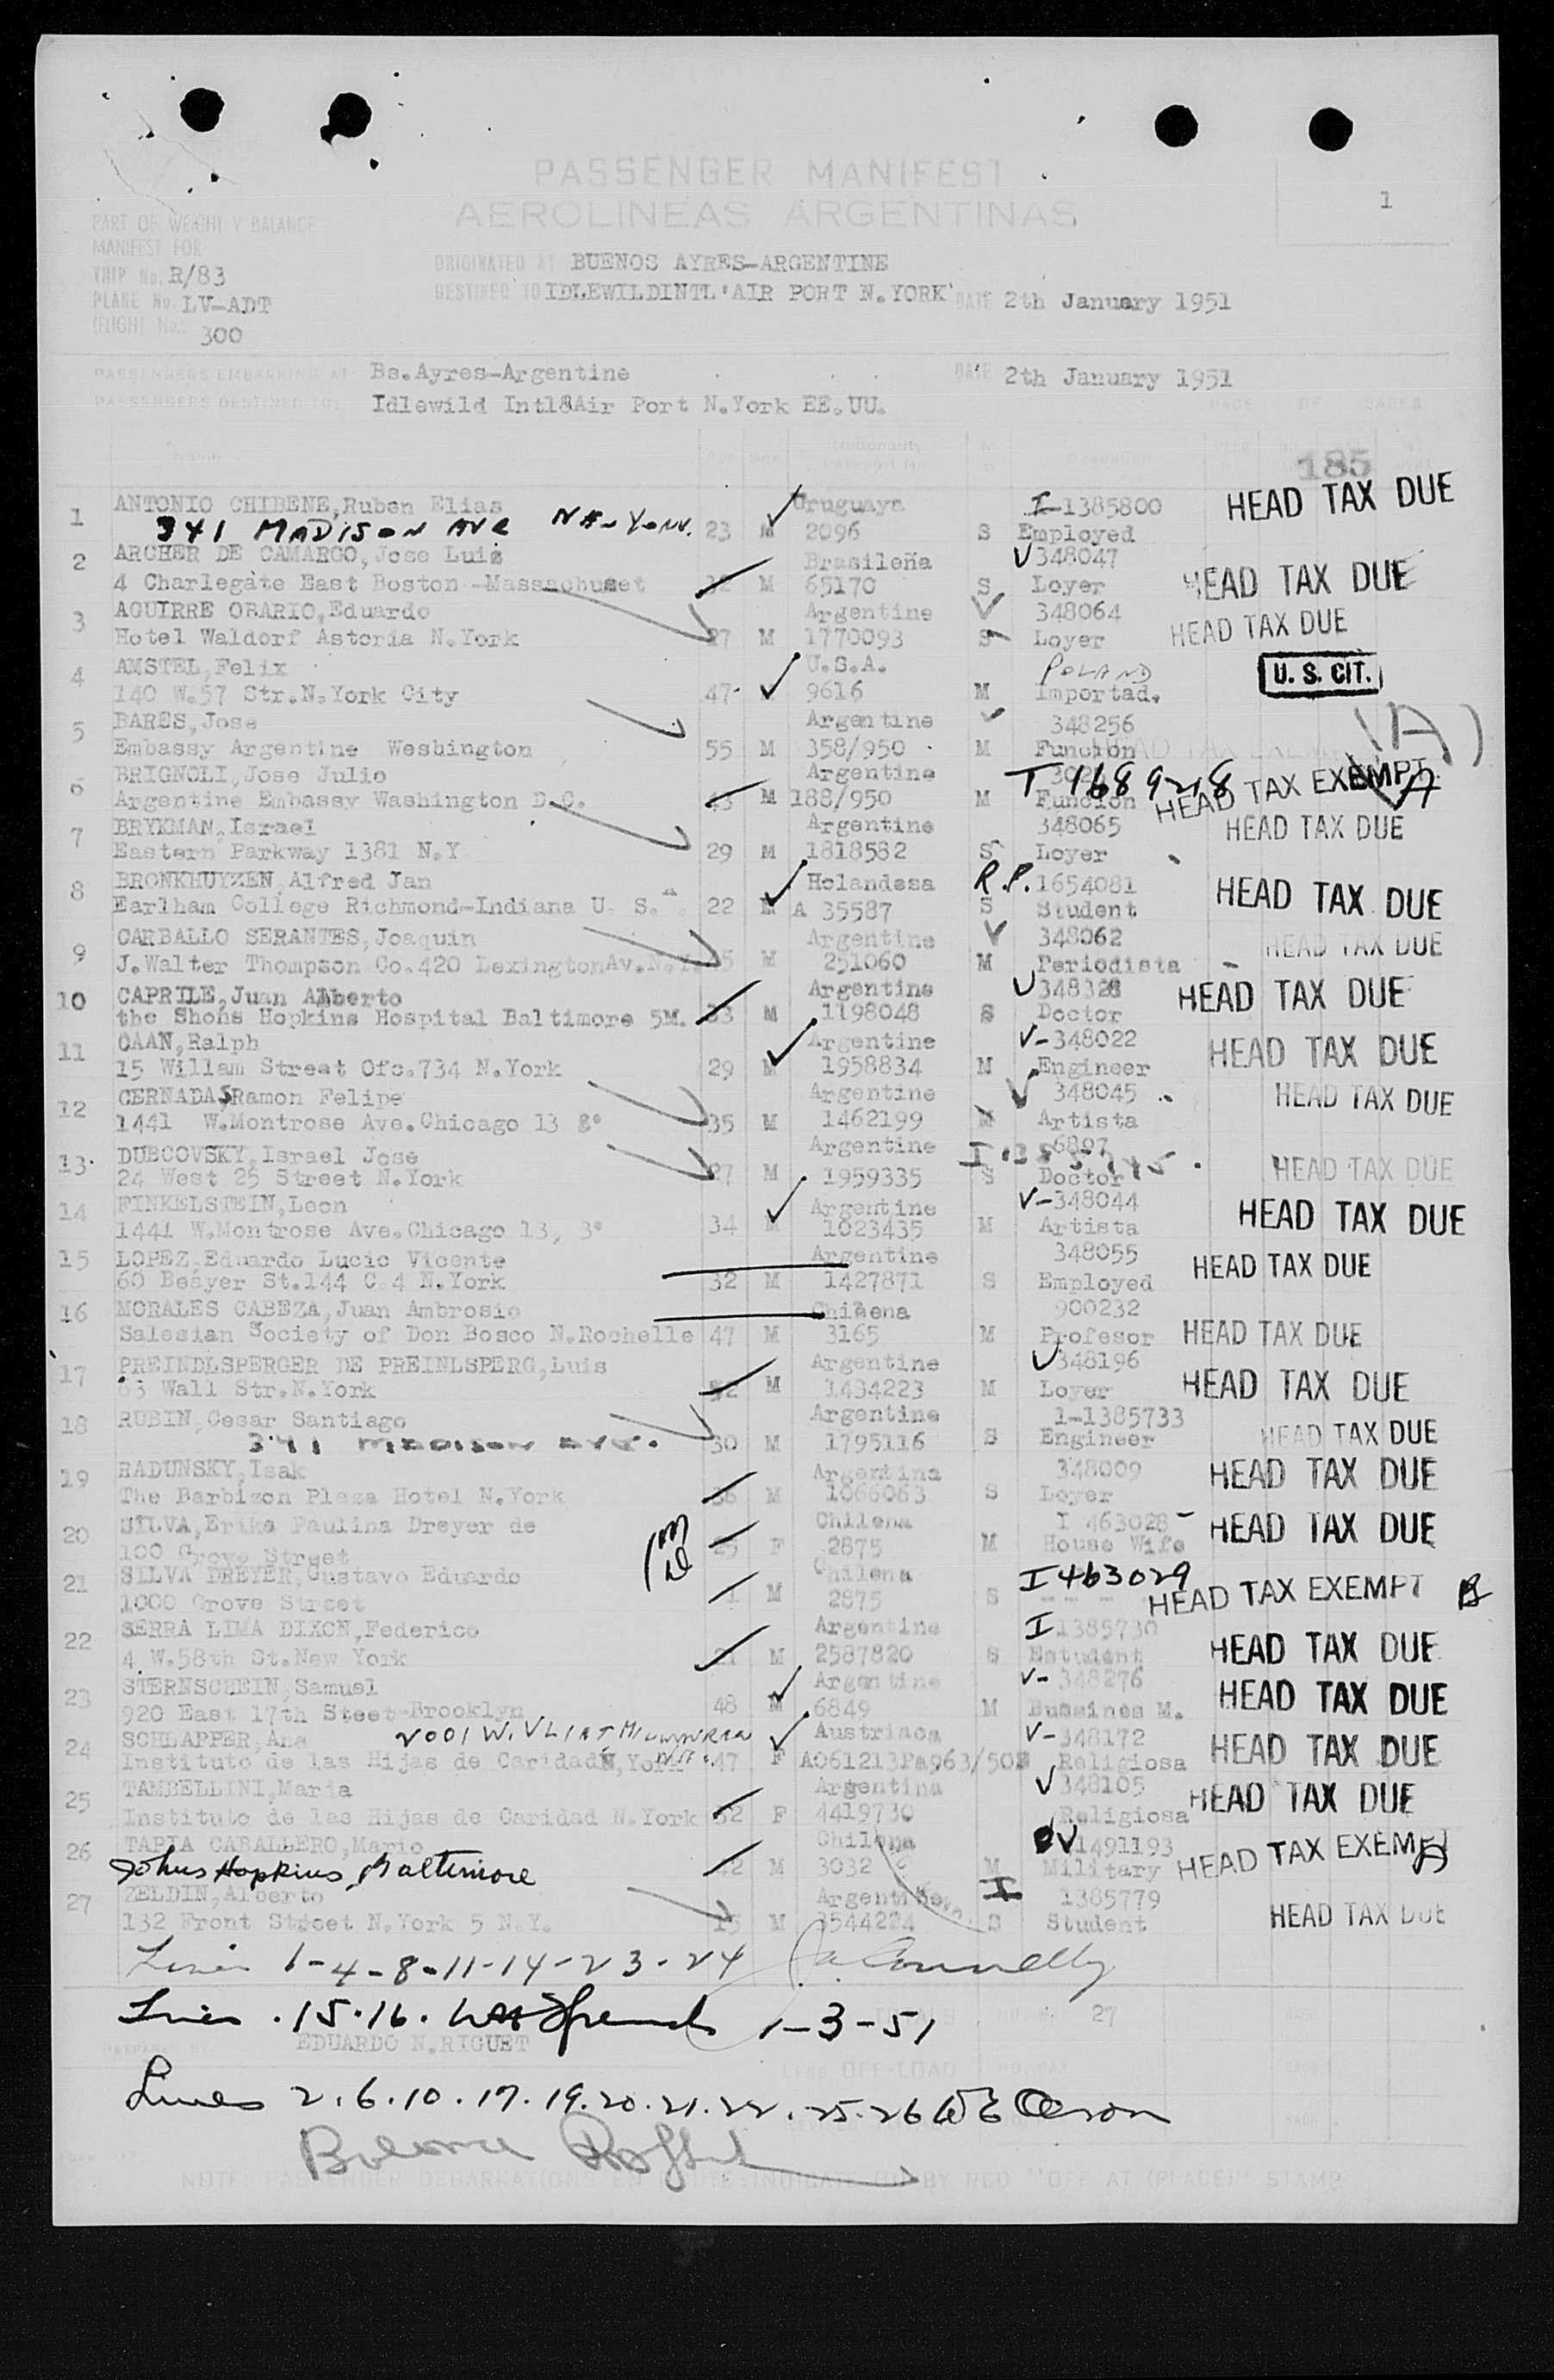 PASSENGER MANIFEST
1
AEROLINEAS ARGENTINAS
PART OF WEIGHT Y BALANCE
MANIFEST FOR
TRIP No. R/83
PLANE No. LV-ADT
(FLIGHT No.) 300
ORIGINATED AT BUENOS AYRES-ARGENTINE
DESTINED TO IDLEWILDINTL'AIR PORT N.YORK' DATE 2th January 1951
PASSENGERS EMBARKING AT Bs.Ayres-Argentine DATE 2th January 1951
PASSENGERS DESTINED TO Idlewild Intl&Air Port N.York EE.UU.
PAGE OF PAGES
Name Age Sex Nationality Passport No
185
1 ANTONIO CHIBENE,Ruben Elias Uruguaya I-1385800 HEAD TAX DUE
341 MADISON AVE 23 M 2096 S Employed
2 ARCHER DE CAMARGO,Jose Luiz Brasileña V348047
4 Charlegate East Boston-Massachuset M 65170 S Loyer HEAD TAX DUE
3 AGUIRRE OBARIO,Eduardo Argentine 348064
Hotel Waldorf Astoria N.York 27 M 1770093 S Loyer HEAD TAX DUE
4 AMSTEL,Felix U.S.A. POLAND
140 W.57 Str.N.York City 47 9616 M Importad. U. S. CIT.
5 BARES,Jose Argentine 348256 (A)
Embassy Argentine Weshington 55 M 358/950 M Funcion HEAD TAX EXEMPT
6 BRIGNOLI,Jose Julio Argentine
Argentine Embassy Washington D.C. 43 M 188/950 M Funcion HEAD TAX EXEMPT A
7 BRYKMAN,Israel Argentine 348065
Eastern Parkway 1381 N.Y 29 M 1818582 S Loyer HEAD TAX DUE
8 BRONKHUYZEN,Alfred Jan Holandesa R.P.1654081
Earlham College Richmond-Indiana U. S. 22 M A 35587 S Student HEAD TAX DUE
9 CARBALLO SERANTES,Joaquin Argentine V 348062
J.Walter Thompson Co.420 LexingtonAv. M 251060 M Periodista HEAD TAX DUE
10 CAPRILE,Juan Alberto Argentine V348328
the Shons Hopkins Hospital Baltimore 5M. 33 M 1198048 S Doctor HEAD TAX DUE
11 CAAN,Ralph Argentine V-348022
15 Willam Street Ofc.734 N.York 29 M 1958834 M Engineer HEAD TAX DUE
12 CERNADAS,Ramon Felipe Argentine V 348045
1441 W.Montrose Ave.Chicago 13 35 M 1462199 M Artista HEAD TAX DUE
13 DUBCOVSKY,Israel Jose Argentine
24 West 25 Street N.York 27 M 1959335 S Doctor HEAD TAX DUE
14 FINKELSTEIN,Leon Argentine V-348044
1441 W.Montrose Ave.Chicago 13, 3° 34 M 1023435 M Artista HEAD TAX DUE
15 LOPEZ,Eduardo Lucio Vicente Argentine 348055
60 Beayer St.144 C.4 N.York 32 M 1427871 S Employed HEAD TAX DUE
16 MORALES CABEZA,Juan Ambrosio Chilena 900232
Salesian Society of Don Bosco N.Rochelle 47 M 3165 M Profesor HEAD TAX DUE
17 PREINDLSPERGER DE PREINLSPERG,Luis Argentine V348196
63 Wall Str.N.York 52 M 1434223 M Loyer HEAD TAX DUE
18 RUBIN,Cesar Santiago Argentine 1-1385733
341 MADISON AVE. 30 M 1795116 S Engineer HEAD TAX DUE
19 RADUNSKY,Isak Argentina 348009
The Barbizon Plaza Hotel N.York M 1066063 S Loyer HEAD TAX DUE
20 SILVA,Erika Paulina Dreyer de Chilena I 463028
100 Grove Street F 2875 M House Wife HEAD TAX DUE
21 SILVA DREYER,Gustavo Eduardo Chilena I463029
1000 Grove Street 1 M 2875 S HEAD TAX EXEMPT
22 SERRA LIMA DIXON,Federico Argentine I 1385730
4 W.58th St.New York 21 M 2587820 S Estudent HEAD TAX DUE
23 STERNSCHEIN,Samuel Argentine V-348276
920 East 17th Steet-Brooklyn 48 M 6849 M Bussines M. HEAD TAX DUE
24 SCHLAPPER,Ana 2001 W. VLIET Austriaca V-348172
Instituto de las Hijas de Caridad N,York 47 F A061213Pa963/50 Religiosa HEAD TAX DUE
25 TAMBELLINI,Maria Argentina V348105
Instituto de las Hijas de Caridad N.York 32 F 4419730 Religiosa HEAD TAX DUE
26 TAPIA CABALLERO,Mario Chilena V1491193
Johns Hopkins, Baltimore 42 M 3032 M Military HEAD TAX EXEMPT
27 ZELDIN,Alberto Argentine I 1385779
132 Front Street N.York 5 N.Y. 15 M 3544224 S Student HEAD TAX DUE
Lines 1-4-8-11-14-23-24 Connelly
Lines 15.16. 1-3-51
27
PREPARED BY EDUARDO N.RIGUET
LESS OFF-LOAD
Lines 2.6.10.17.19.20.21.22.25.26